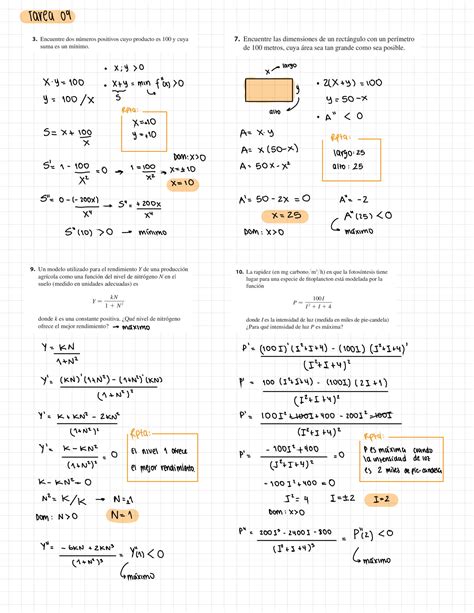 Tarea 09
3. Encuentre dos números positivos cuyo producto es 100 y cuya
suma es un mínimo.
• x, y > 0
x·y = 100
• x+y = min f''(x) > 0
S
y = 100/x
Rpta:
x=+10
y=+10
S = x + 100/x
S' = 1 - 100/x² = 0 → 1 = 100/x² → x=±10
Dom: x>0
x=10
S'' = 0-(-200x)/x⁴ → S'' = +200x/x⁴
S''(10) > 0 → mínimo
7. Encuentre las dimensiones de un rectángulo con un perímetro
de 100 metros, cuya área sea tan grande como sea posible.
x → largo
y
alto
• 2(x+y) = 100
y = 50-x
• A'' < 0
A = x·y
A = x(50-x)
A = 50x - x²
Rpta:
largo: 25
alto: 25
A' = 50 - 2x = 0
A'' = -2
x = 25
A''(25) < 0
Dom: x>0
máximo
9. Un modelo utilizado para el rendimiento Y de una producción
agrícola como una función del nivel de nitrógeno N en el
suelo (medido en unidades adecuadas) es
Y = kN / 1 + N²
donde k es una constante positiva. ¿Qué nivel de nitrógeno
ofrece el mejor rendimiento? → máximo
Y = KN / 1+N²
Y' = (KN)'(1+N²) - (1+N²)'(KN) / (1+N²)²
Y' = K+KN² - 2KN² / (1+N²)²
Y' = K-KN² / (1+N²)² = 0
Rpta:
El nivel 1 ofrece
el mejor rendimiento.
K-KN² = 0
N² = K/K → N=±1
Dom: N>0
N=1
Y'' = -6KN + 2KN³ / (1+N²)³
Y''(1) < 0
máximo
10. La rapidez (en mg carbono/m³/h) en que la fotosíntesis tiene
lugar para una especie de fitoplancton está modelada por la
función
P = 100I / I² + I + 4
donde I es la intensidad de luz (medida en miles de pie-candela)
¿Para qué intensidad de luz P es máxima?
P' = (100I)'(I²+I+4) - (100I)(I²+I+4)' / (I²+I+4)²
P' = 100(I²+I+4) - (100I)(2I+1) / (I²+I+4)²
P' = 100I²+100I+400 - 200I²-100I / (I²+I+4)²
P' = -100I²+400 / (I²+I+4)² = 0
Rpta:
P es máxima cuando
la intensidad de luz
es 2 miles de pie-candela
-100I²+400 = 0
I² = 4 I=±2 I=2
P'' = 200I³-2400I-800 / (I²+I+4)³
P''(2) < 0
máximo